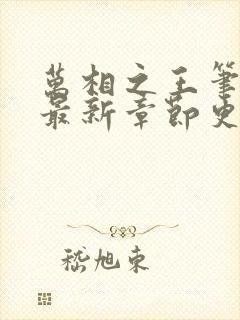 萬相之王筆
最新章節史
嵇旭東